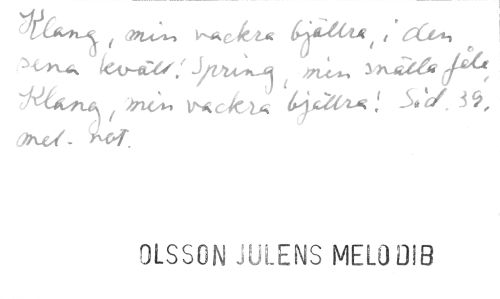 Klang, min vackra bjällra, i den
sena kväll! Spring, min snälla fåle,
Klang, min vackra bjällra! Sid. 39.
mel. not.
OLSSON JULENS MELODIB